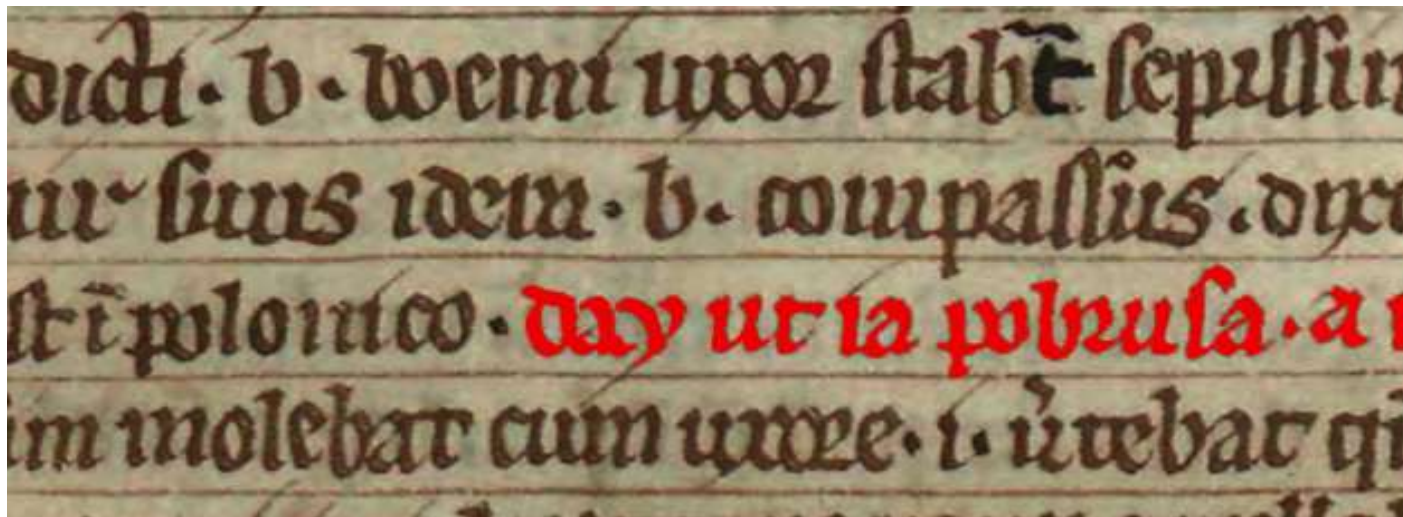 dicti · b · woemi uxor stabt̄ sepissim
uir suus idem · b · compassus · dix
st ī polonico · day ut ia pobrusa · a
im molebat cum uxore · i · u͛tebat qi